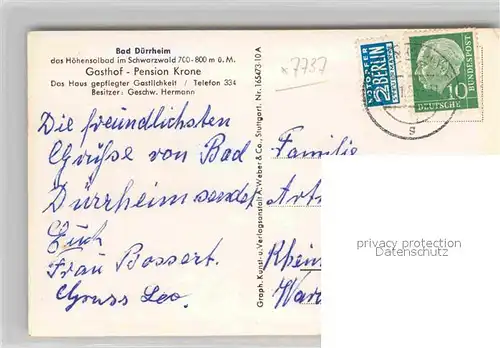 Bad Dürrheim
das Höhensolbad im Schwarzwald 700-800 m ü. M.
Gasthof - Pension Krone
Das Haus gepflegter Gastlichkeit / Telefon 334
Besitzer: Geschw. Hermann
Die freundlichsten
Grüße von Bad
Dürrheim sendet
Euch
Frau Bossert.
Gruss Leo.
Graph. Kunst- u. Verlagsanstalt A. Weber & Co., Stuttgart. Nr. 165473-10 A
x7737
NOTOPFER
2 BERLIN
STEUERMARKE
DEUTSCHE
BUNDESPOST
10
S
Familie
Art
Rhein
War
privacy protection
Datenschutz